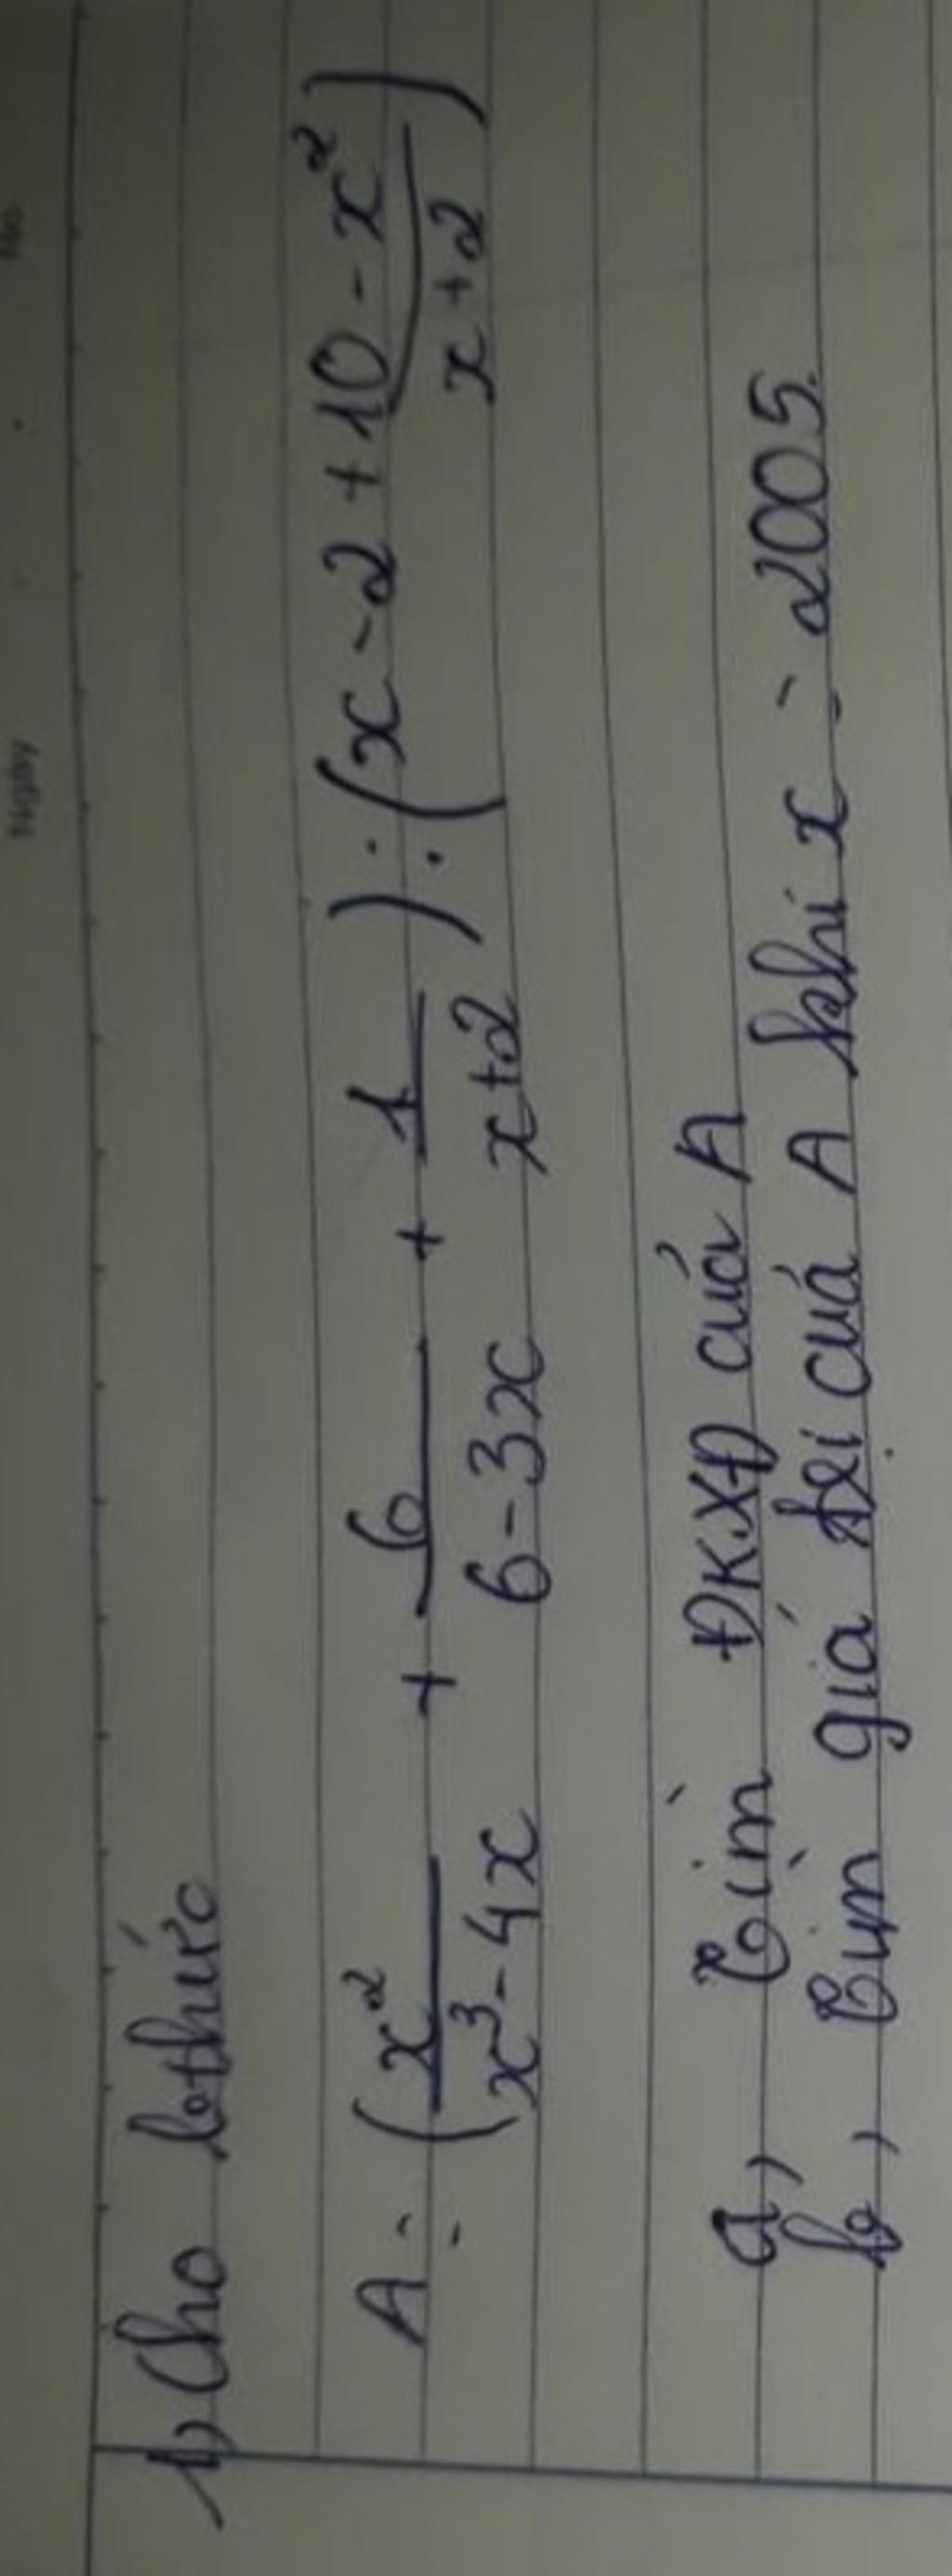 Ngày No.
1, Cho bthức
A = (x²/(x³-4x) + 6/(6-3x) + 1/(x+2)) : (x-2 + (10-x²)/(x+2))
a, Tìm ĐKXĐ của A
b, Tìm giá trị của A khi x = 2005.